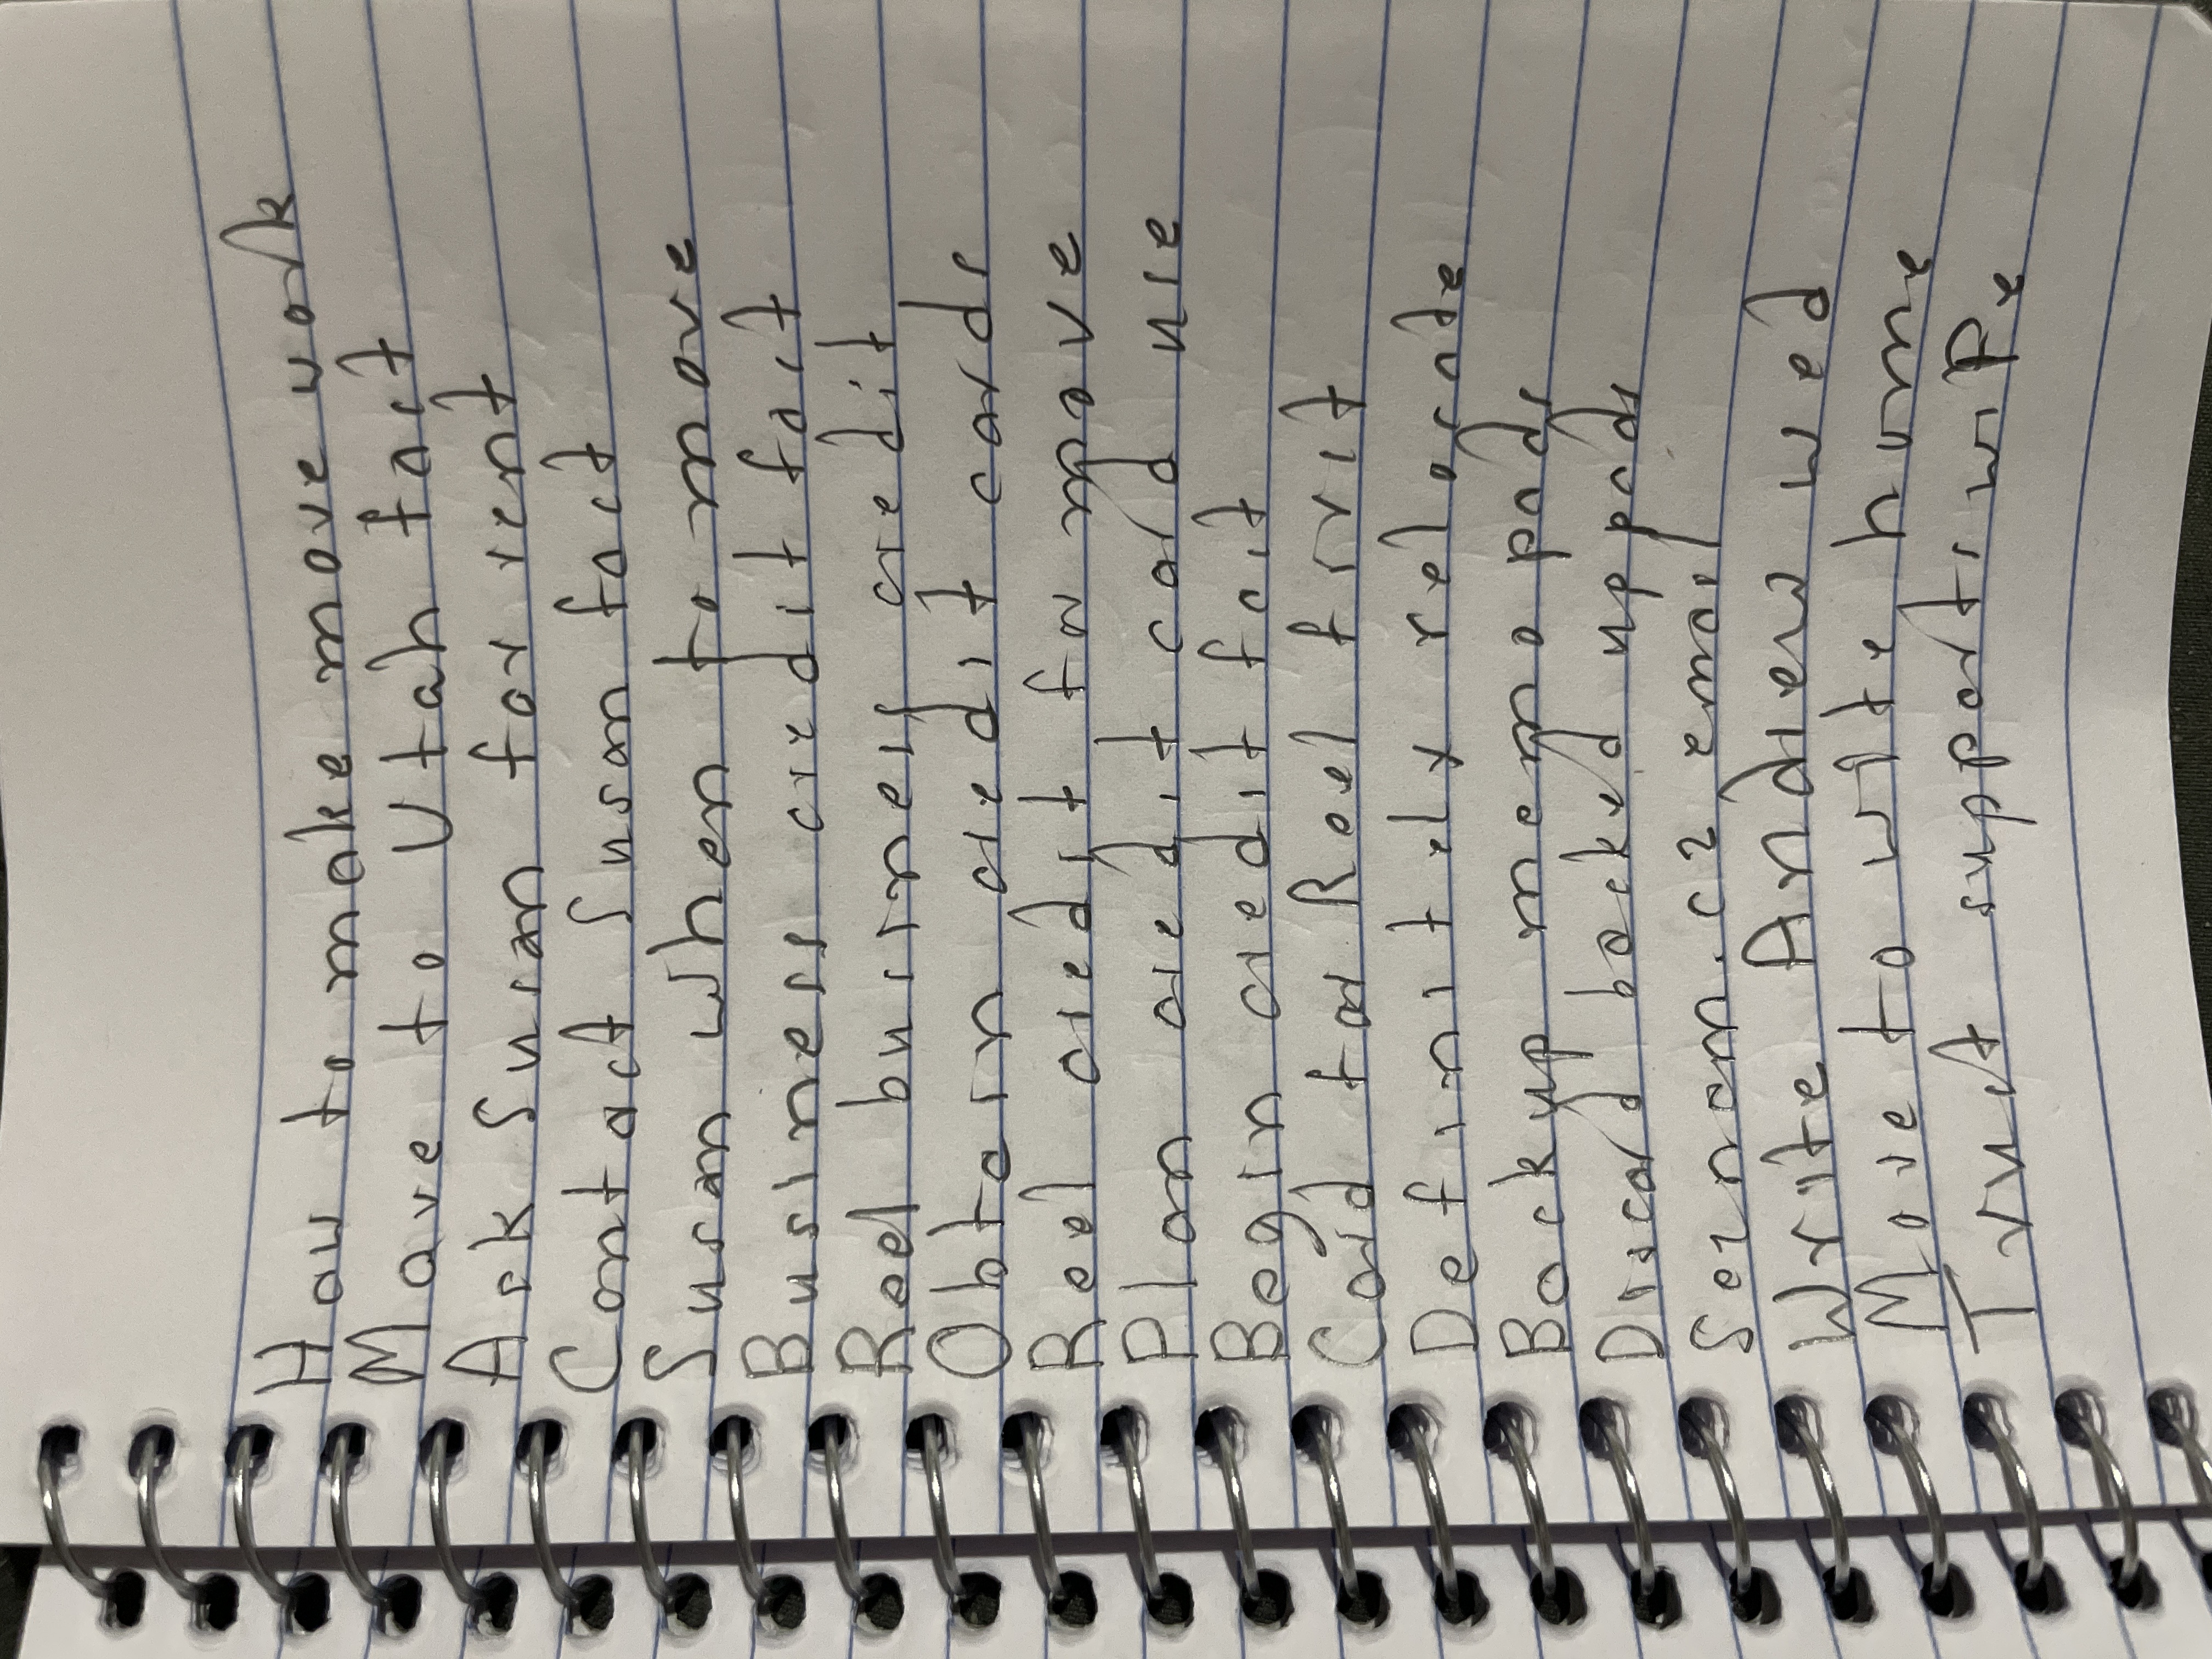 How to make move work
Move to Utah fact
Ask Susan for rent
Contact Susan fact
Susan when to move
Business credit fact
Reel business credit
Obtain credit cards
Reel credit for move
Plan credit card use
Begin credit fact
Card for Reel first
Definitely relocate
Backup memo pads
Discard backed up pads
email
Write Andrew wed
Move to write home
Trust support